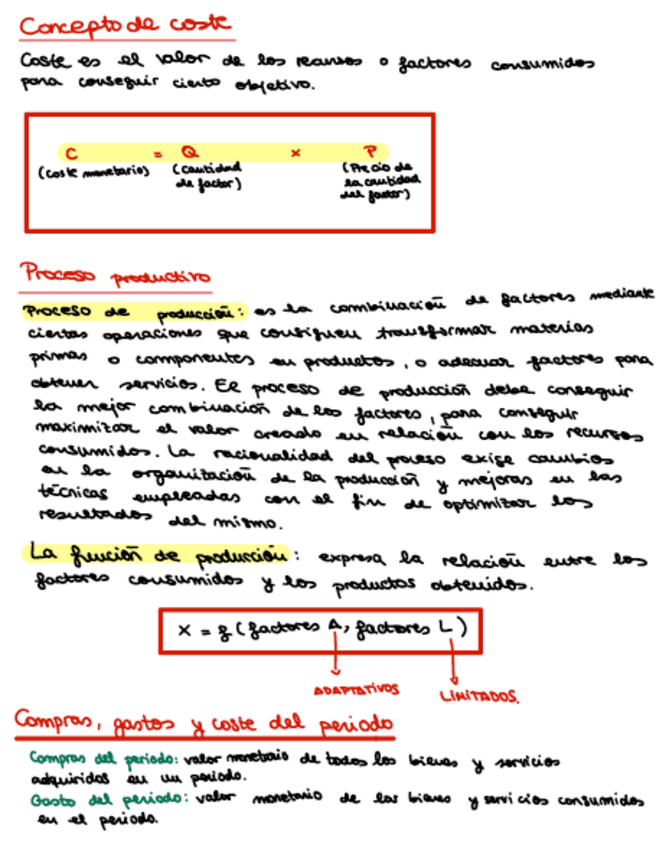 Concepto de coste
Coste es el valor de los recursos o factores consumidos
para conseguir cierto objetivo.
C = Q x P
(coste monetario) (cantidad de factor) (Precio de la cantidad del factor)
Proceso productivo
Proceso de producción: es la combinación de factores mediante
ciertas operaciones que consiguen transformar materias
primas o componentes en productos, o adecuar factores para
obtener servicios. El proceso de producción debe conseguir
la mejor combinación de los factores, para conseguir
maximizar el valor creado en relación con los recursos
consumidos. La racionalidad del proceso exige cambios
en la organización de la producción y mejoras en las
técnicas empleadas con el fin de optimizar los
resultados del mismo.
La función de producción: expresa la relación entre los
factores consumidos y los productos obtenidos.
X = f (factores A, factores L)
ADAPTATIVOS LIMITADOS.
Compras, gastos y coste del periodo
Compras del periodo: valor monetario de todos los bienes y servicios
adquiridos en un periodo.
Gasto del periodo: valor monetario de los bienes y servicios consumidos
en el periodo.